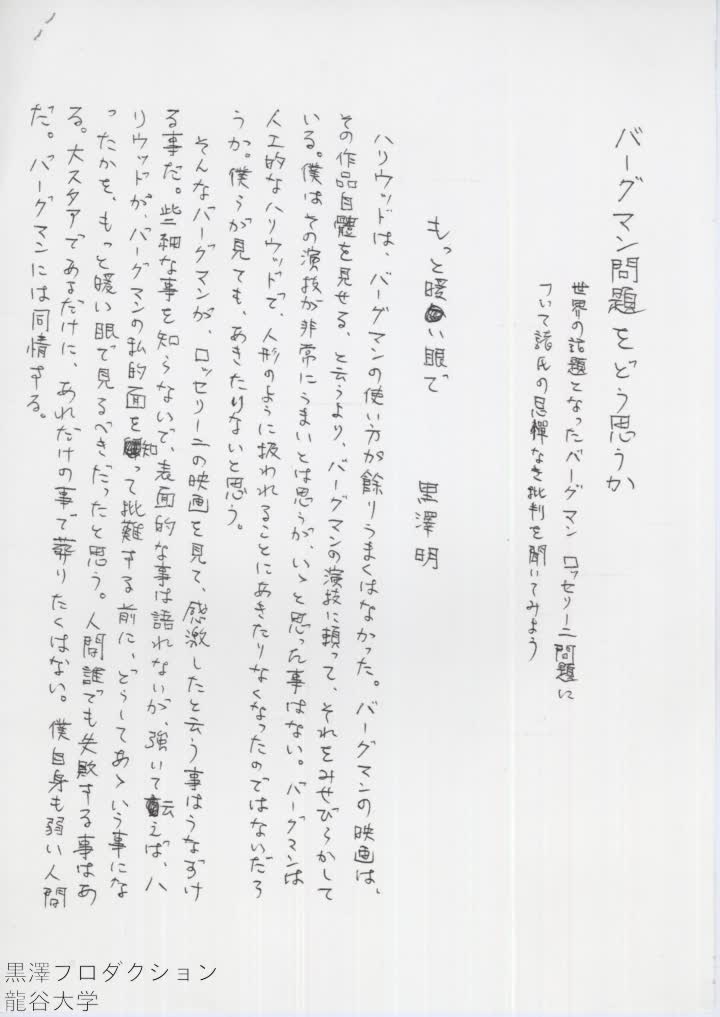 バーグマン問題をどう思うか
世界の話題となったバーグマン ロッセリーニ問題に
ついて諸氏の忌憚なき批判を聞いてみよう
もっと暖い眼で 黒澤明
ハリウッドは、バーグマンの使い方が餘りうまくはなかった。バーグマンの映画は、
その作品自體を見せる、と云うより、バーグマンの演技に頼って、それをみせびらかして
いる。僕はその演技が非常にうまいとは思うが、いゝと思った事はない。バーグマンは
人工的なハリウッドで、人形のように扱われることにあきたりなくなったのではないだろ
うか。僕らが見ても、あきたりないと思う。
そんなバーグマンが、ロッセリーニの映画を見て、感激したと云う事はうなずけ
る事だ。些細な事を知らないで、表面的な事は語れないが、強いて云えば、ハ
リウッドが、バーグマンの私的面を知って批難する前に、どうしてあゝいう事にな
ったかを、もっと暖い眼で見るべきだったと思う。人間誰でも失敗する事はあ
る。大スタアであるだけに、あれだけの事で葬りたくはない。僕自身も弱い人間
だ。バーグマンには同情する。
黒澤プロダクション
龍谷大学